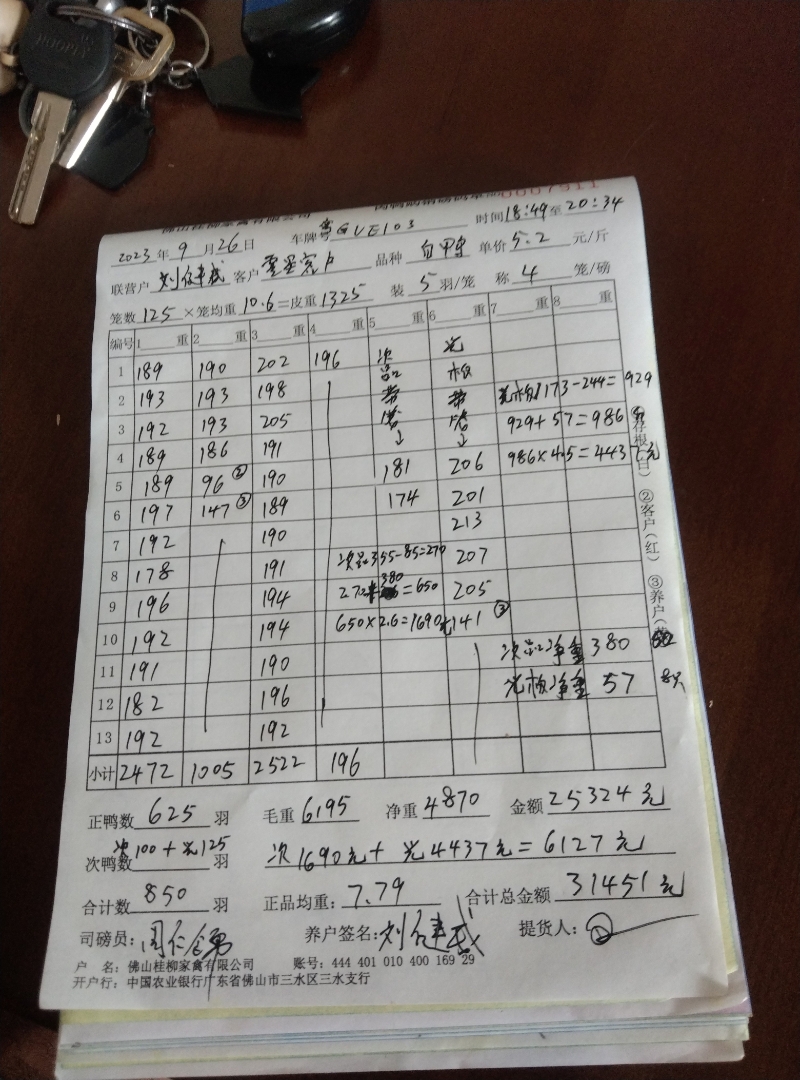 0007911
2023年9月26日 车牌号粤GVE103 时间18:49至20:34
联营户 客户 品种 单价5.2元/斤
笼数125×笼均重10.6=皮重1325 装5羽/笼 称4笼/磅
编号 1重 2重 3重 4重 5重 6重 7重 8重
1 189 190 202 196 次 光
2 193 193 198 品 板 光板1173-244=929
3 192 193 205 带 带 929+57=986斤
4 189 186 191 ↓ ↓ 986×4.5=4437元
5 189 96② 190 181 206
6 197 147③ 189 174 201
7 192 190 213
8 178 191 次品355-85=270 207
9 196 194 270+380=650 205
10 192 194 650×2.6=1690元 141③
11 191 190 次品净重380
12 182 196 光板净重57
13 192 192
小计 2472 1005 2522 196
②客户(红)
③养户
正鸭数625羽 毛重6195 净重4870 金额25324元
次鸭数次100+光125羽 次1690元+光4437元=6127元
合计数850羽 正品均重:7.79 合计总金额31451元
司磅员: 养户签名: 提货人:
户 名:佛山桂柳家禽有限公司 账号:444 401 010 400 169 29
开户行:中国农业银行广东省佛山市三水区三水支行